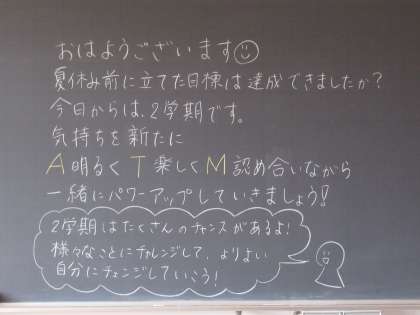 おはようございます
夏休み前に立てた目標は達成できましたか?
今日からは、2学期です。
気持ちを新たに
A明るくT楽しくM認め合いながら
一緒にパワーアップしていきましょう!!
2学期はたくさんのチャンスがあるよ!
様々なことにチャレンジして、よりよい
自分にチェンジしていこう!